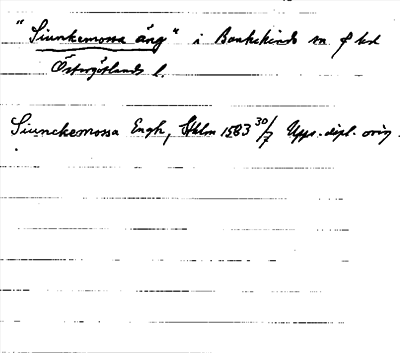 "Siunkemossa äng" i Bankekinds sn o hd
Östergötlands l.
Siunckemossa Engh, Sthlm 1583 30/7 Upps. dipl. orig.